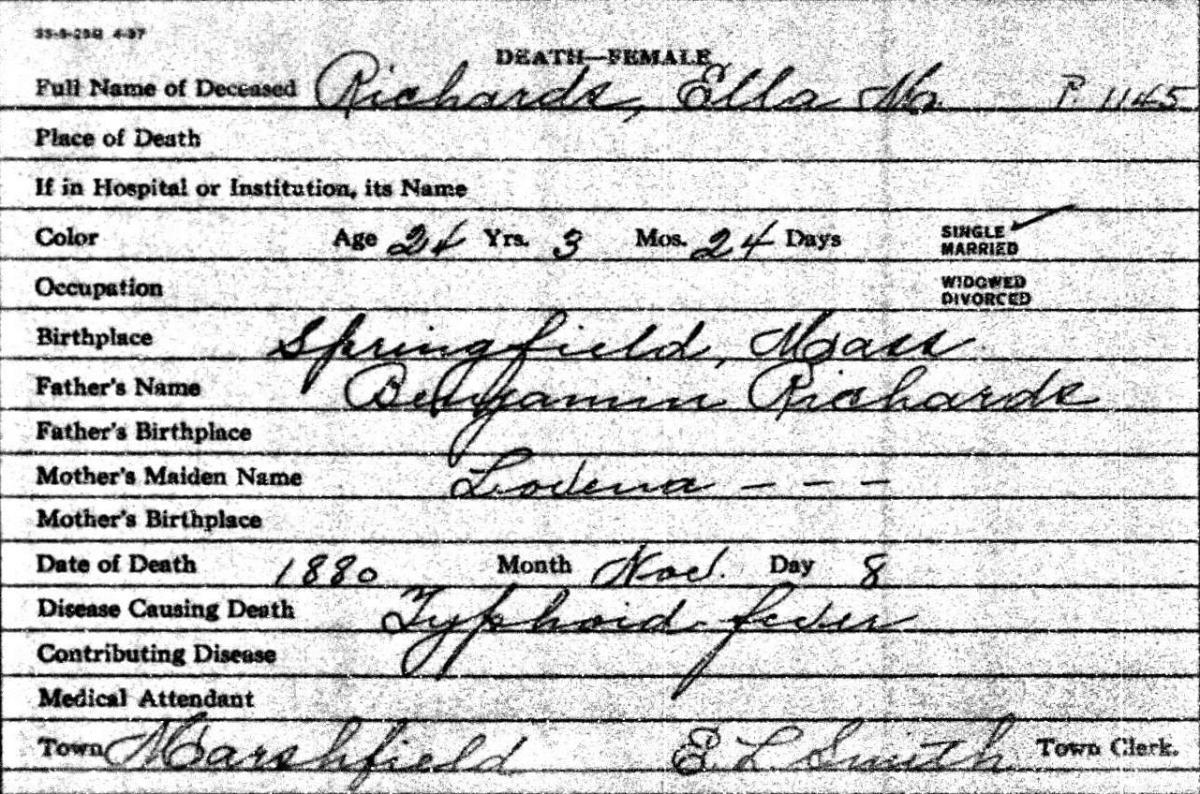 DEATH—FEMALE
Full Name of Deceased Richards, Ella M. P. 1145
Place of Death
If in Hospital or Institution, its Name
Color Age 24 Yrs. 3 Mos. 24 Days SINGLE ✓
MARRIED
Occupation WIDOWED
DIVORCED
Birthplace Springfield, Mass
Father's Name Benjamin Richards
Father's Birthplace
Mother's Maiden Name Lovena - - -
Mother's Birthplace
Date of Death 1880 Month Nov. Day 8
Disease Causing Death Typhoid fever
Contributing Disease
Medical Attendant
Town Marshfield E. L. Smith Town Clerk.